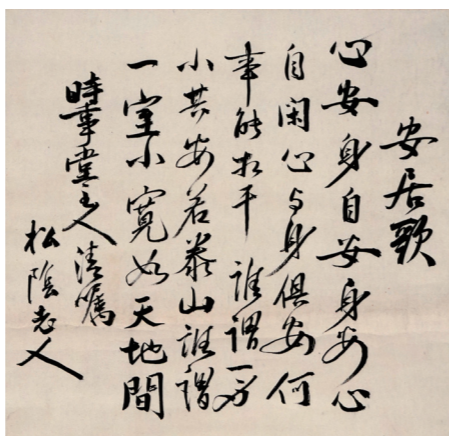 安居歌
心安身自安身安心
自閑心与身俱安何
事能相干誰謂一身
小其安若泰山誰謂
一室小寬如天地間
時事堂主人清囑
松陰老人